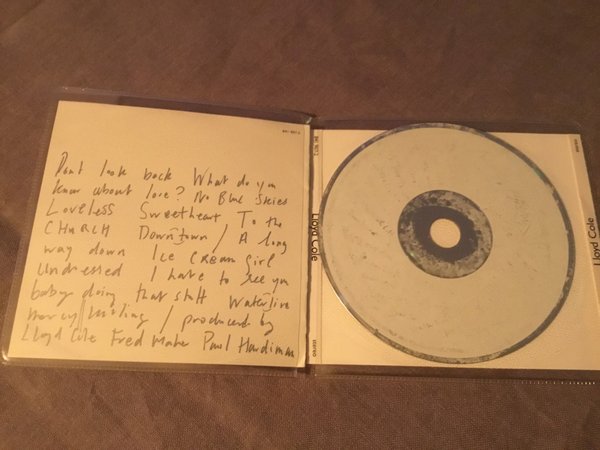 Dont look back What do you
know about love? No Blue Skies
Loveless Sweetheart To the
CHURCH DOWNTOWN / A long
way down Ice CREAM girl
Undressed I hate to see you
baby doing that stuff Waterline
Mercy Killing / produced by
Lloyd Cole Fred Maher Paul Hardiman
Lloyd Cole
Lloyd Cole